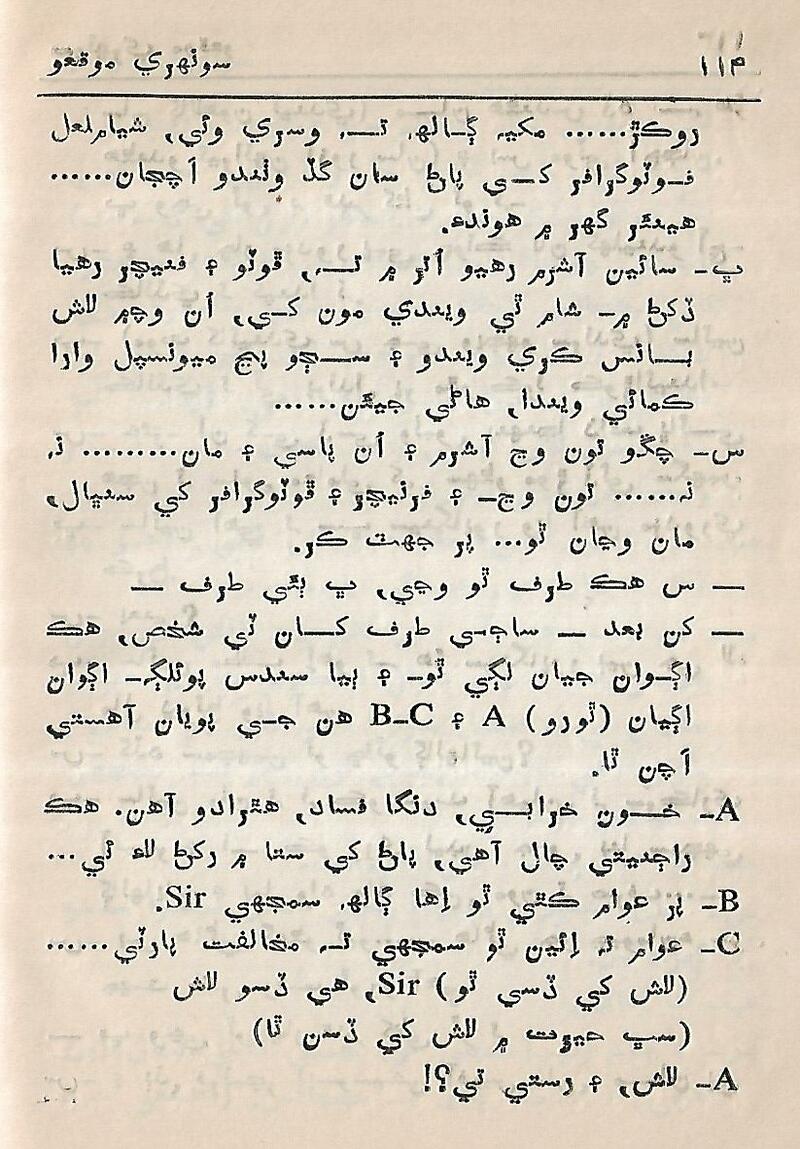 ۱۱۴ سونهري موقعو
روڪڙ...... مکيه ڳالهه تہ وسري وئي، شيام لعل
فوٽوگرافر کي پاڻ سان گڏ وٺندو اَچجان......
هينئر گهر ۾ هوندو.
ب- سائين آشرم رهيو اُتر ۾ تہ، ڦوٽو ۽ فنيچر رهيا
ڏکڻ ۾- شام ٿي ويندي مون کي، اُن وچ۾ لاش
بانس ڪري ويندو ۽ سڄو پڃ ميونسپل وارا
ڪمائي ويندا، هاڻي جيئن......
س- چڱو تون وڃ آشرم ۽ اُن پاسي ۽ مان......... نہ
نہ...... تون وڃ- ۽ فرنيچر ۽ ڦوٽوگرافر کي سنڀال،
مان وڃان ٿو... پر جهٽ ڪر.
— س هڪ طرف ٿو وڃي، ب ٻئي طرف —
— کن بعد — ساڄي طرف کان ٽي شخص، هڪ
اڳوان جيان لڳي ٿو- ۽ ٻيا سندس پوئلڳ- اڳوان
اڳيان (ٿورو) A ۽ B-C هن جي پويان آهستي
اَچن ٿا.
A- خون خرابي، دنگا فساد، هٿرادو آهن. هڪ
راجنيتي چال آهي، پاڻ کي ستا ۾ رکڻ لاءِ ئي...
B- پر عوام ڪٿي ٿو اِها ڳالهه سمجهي Sir.
C- عوام تہ اِئين ٿو سمجهي تہ مخالفت پارٽي......
(لاش کي ڏسي ٿو) Sir، هي ڏسو لاش
(سڀ حيرت ۾ لاش کي ڏسن ٿا)
A- لاش، ۽ رستي تي؟!